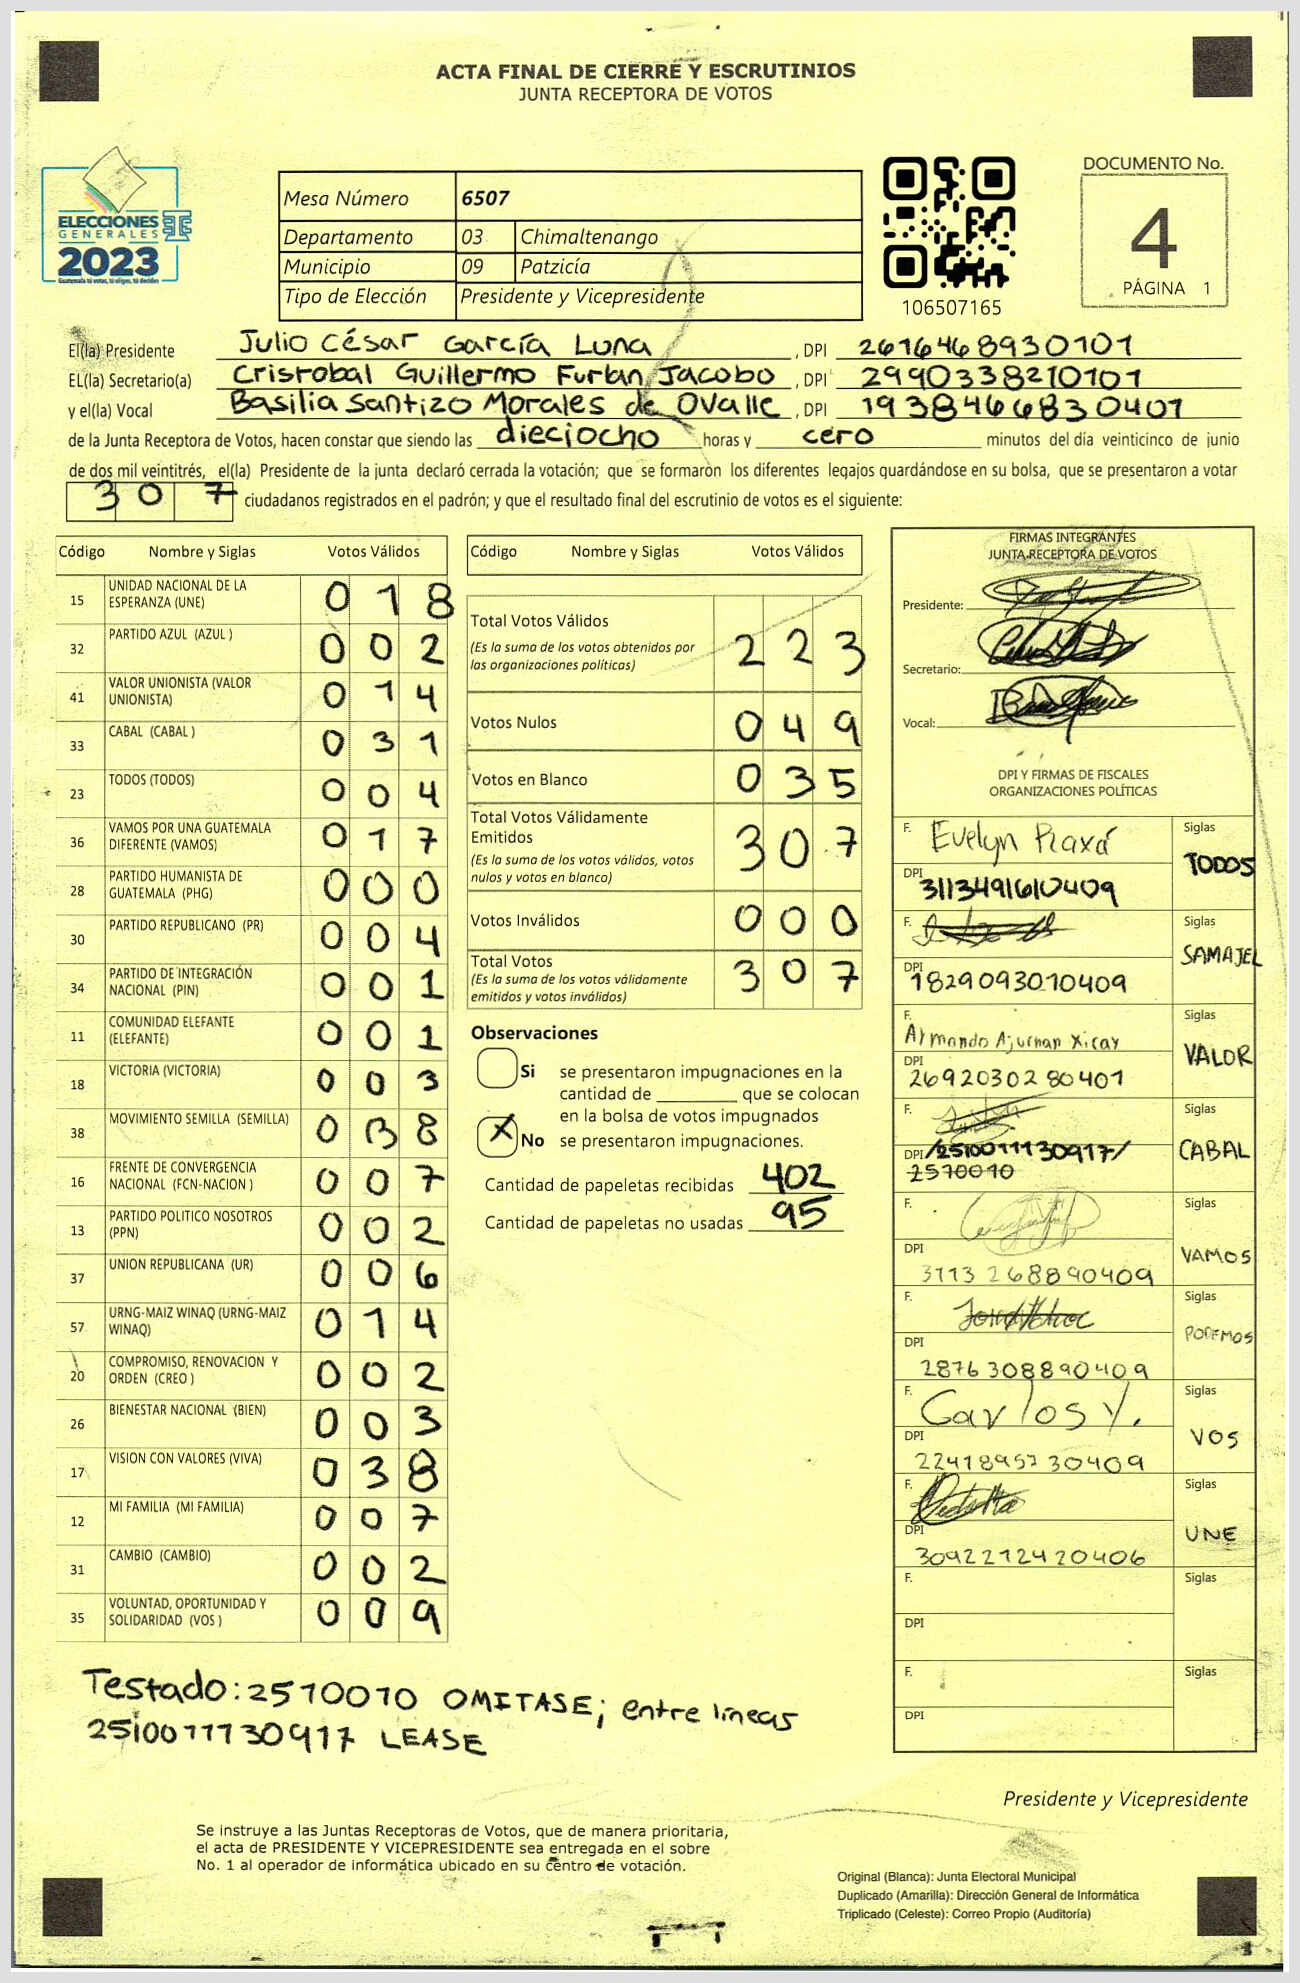 ACTA FINAL DE CIERRE Y ESCRUTINIOS
JUNTA RECEPTORA DE VOTOS
ELECCIONES
GENERALES
2023
Guatemala tú votas, tú eliges, tú decides
Mesa Número 6507
Departamento 03 Chimaltenango
Municipio 09 Patzicía
Tipo de Elección Presidente y Vicepresidente
106507165
DOCUMENTO No.
4
PÁGINA 1
El(la) Presidente Julio César García Luna, DPI 2616468930101
EL(la) Secretario(a) Cristobal Guillermo Furlan Jacobo, DPI 2990338210101
y el(la) Vocal Basilia Santizo Morales de Ovalle, DPI 1938466830401
de la Junta Receptora de Votos, hacen constar que siendo las dieciocho horas y cero minutos del día veinticinco de junio
de dos mil veintitrés, el(la) Presidente de la junta declaró cerrada la votación; que se formaron los diferentes legajos quardándose en su bolsa, que se presentaron a votar
307 ciudadanos registrados en el padrón; y que el resultado final del escrutinio de votos es el siguiente:
Código Nombre y Siglas Votos Válidos
15 UNIDAD NACIONAL DE LA ESPERANZA (UNE) 018
32 PARTIDO AZUL (AZUL ) 002
41 VALOR UNIONISTA (VALOR UNIONISTA) 014
33 CABAL (CABAL ) 031
23 TODOS (TODOS) 004
36 VAMOS POR UNA GUATEMALA DIFERENTE (VAMOS) 017
28 PARTIDO HUMANISTA DE GUATEMALA (PHG) 000
30 PARTIDO REPUBLICANO (PR) 004
34 PARTIDO DE INTEGRACIÓN NACIONAL (PIN) 001
11 COMUNIDAD ELEFANTE (ELEFANTE) 001
18 VICTORIA (VICTORIA) 003
38 MOVIMIENTO SEMILLA (SEMILLA) 038
16 FRENTE DE CONVERGENCIA NACIONAL (FCN-NACION ) 007
13 PARTIDO POLITICO NOSOTROS (PPN) 002
37 UNION REPUBLICANA (UR) 006
57 URNG-MAIZ WINAQ (URNG-MAIZ WINAQ) 014
20 COMPROMISO, RENOVACION Y ORDEN (CREO ) 002
26 BIENESTAR NACIONAL (BIEN) 003
17 VISION CON VALORES (VIVA) 038
12 MI FAMILIA (MI FAMILIA) 007
31 CAMBIO (CAMBIO) 002
35 VOLUNTAD, OPORTUNIDAD Y SOLIDARIDAD (VOS ) 009
Código Nombre y Siglas Votos Válidos
Total Votos Válidos 223
(Es la suma de los votos obtenidos por
las organizaciones políticas)
Votos Nulos 049
Votos en Blanco 035
Total Votos Válidamente
Emitidos 307
(Es la suma de los votos válidos, votos
nulos y votos en blanco)
Votos Inválidos 000
Total Votos 307
(Es la suma de los votos válidamente
emitidos y votos inválidos)
Observaciones
Si se presentaron impugnaciones en la
cantidad de ________ que se colocan
en la bolsa de votos impugnados
X No se presentaron impugnaciones.
Cantidad de papeletas recibidas 402
Cantidad de papeletas no usadas 95
FIRMAS INTEGRANTES
JUNTA RECEPTORA DE VOTOS
Presidente:
Secretario:
Vocal:
DPI Y FIRMAS DE FISCALES
ORGANIZACIONES POLÍTICAS
F. Evelyn Raxá Siglas
DPI 3113491610409 TODOS
F. Siglas
DPI 1829093010409 SAMAJEL
F. Armando Ajuchan Xicay Siglas
DPI 2692030280401 VALOR
F. Siglas
DPI /2510011130917/ CABAL
2510010
F. Siglas
DPI 3113268890409 VAMOS
F. Siglas
DPI 2876308890409 PODEMOS
F. Carlos Y. Siglas
DPI 2241895730409 VOS
F. Siglas
DPI 3092212420406 UNE
F. Siglas
DPI
F. Siglas
DPI
Testado: 2510010 OMITASE; entre lineas
2510011130917 LEASE
Presidente y Vicepresidente
Se instruye a las Juntas Receptoras de Votos, que de manera prioritaria,
el acta de PRESIDENTE Y VICEPRESIDENTE sea entregada en el sobre
No. 1 al operador de informática ubicado en su centro de votación.
Original (Blanca): Junta Electoral Municipal
Duplicado (Amarilla): Dirección General de Informática
Triplicado (Celeste): Correo Propio (Auditoría)